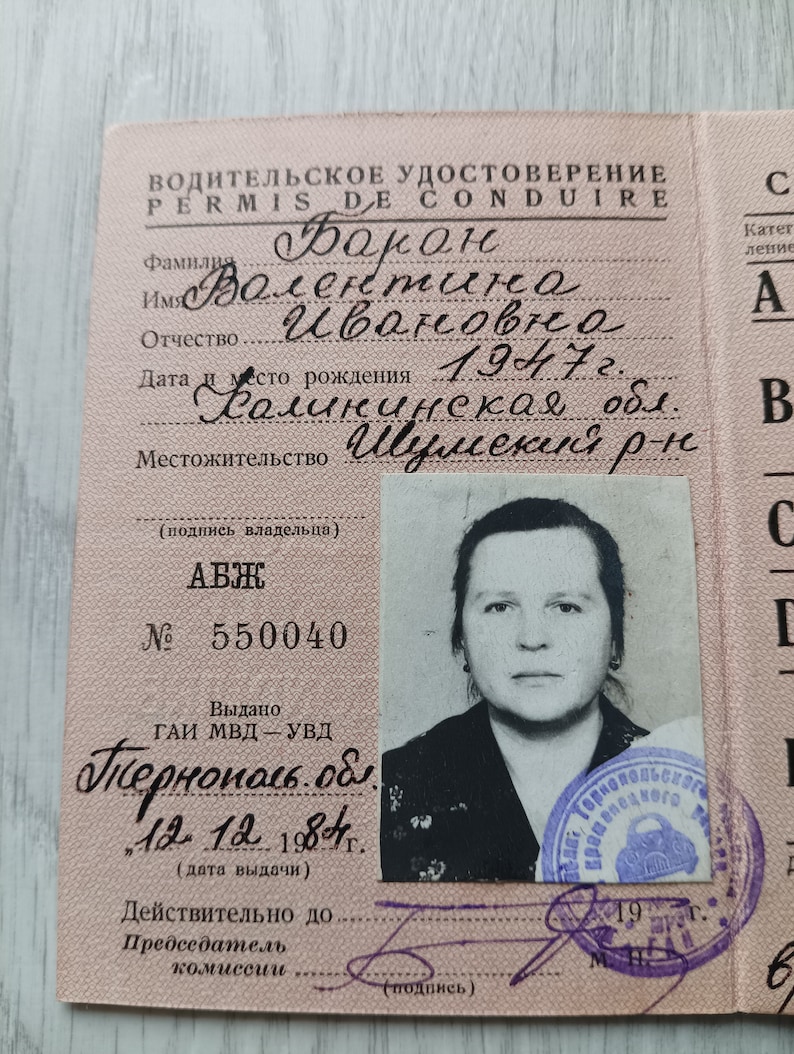 ВОДИТЕЛЬСКОЕ УДОСТОВЕРЕНИЕ
PERMIS DE CONDUIRE
Фамилия Баран
Имя Валентина
Отчество Ивановна
Дата и место рождения 1947 г.
Калининская обл.
Местожительство Шумский р-н
(подпись владельца)
АБЖ
№ 550040
Выдано
ГАИ МВД—УВД
Тернополь. обл.
„12 12 1984 г.
(дата выдачи)
Действительно до 19 г.
Председатель
комиссии М. П.
(подпись)
Тернопольского
ГАИ
С
Катег
ление
A
B
C
D